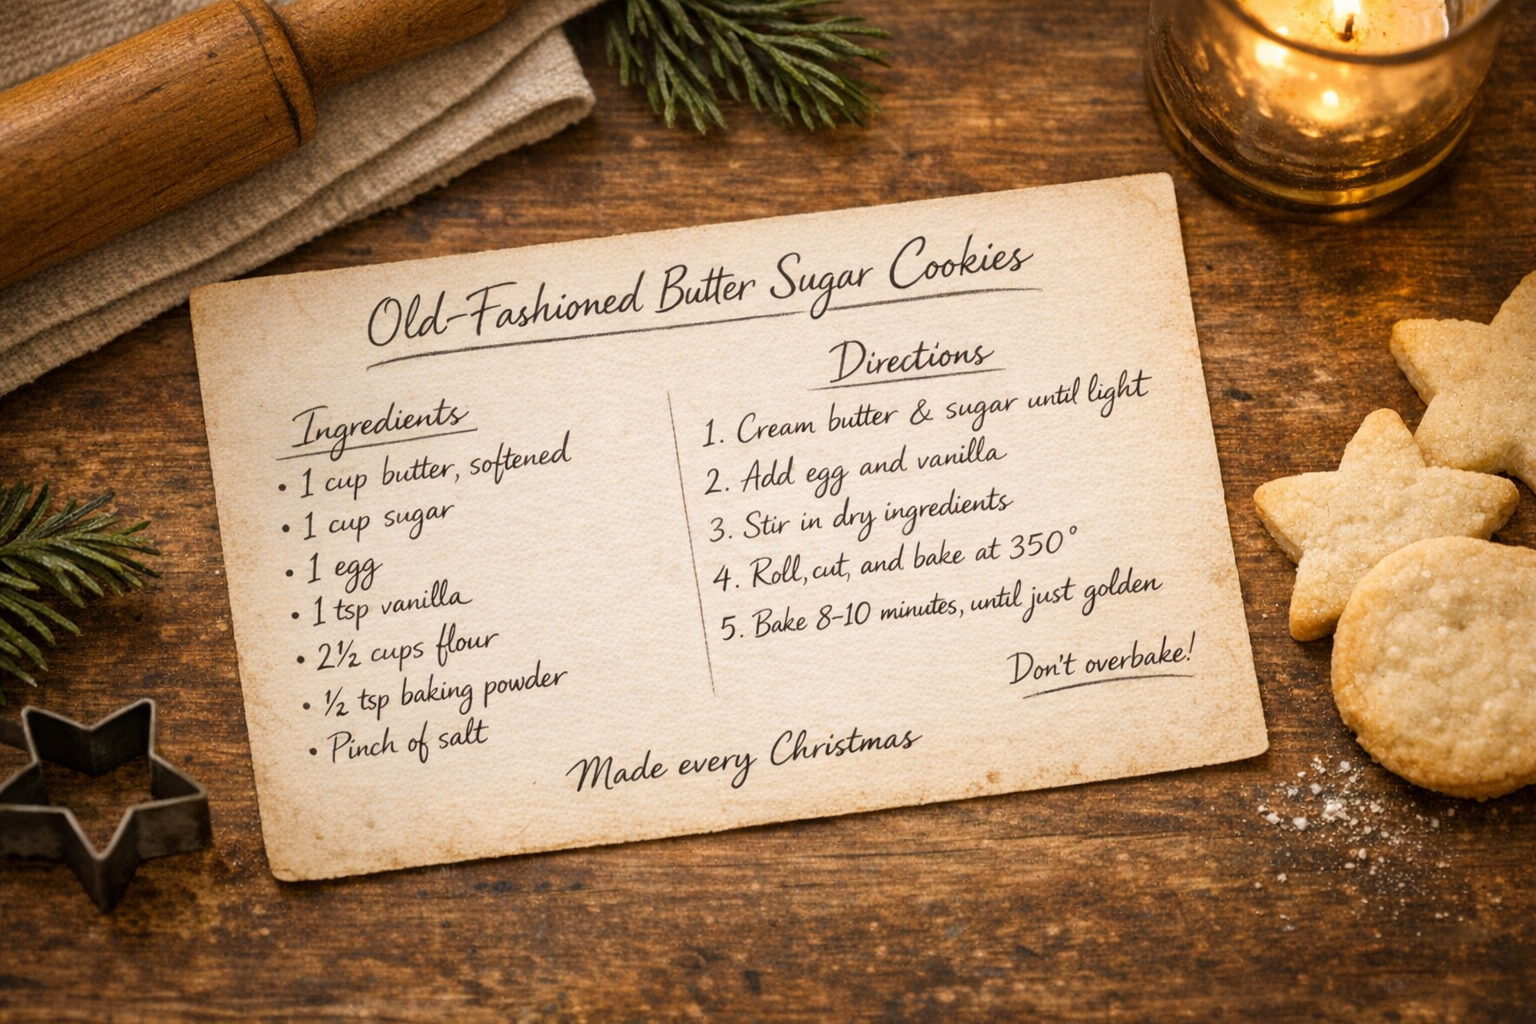 Old-Fashioned Butter Sugar Cookies
Ingredients
• 1 cup butter, softened
• 1 cup sugar
• 1 egg
• 1 tsp vanilla
• 2½ cups flour
• ½ tsp baking powder
• Pinch of salt
Directions
1. Cream butter & sugar until light
2. Add egg and vanilla
3. Stir in dry ingredients
4. Roll, cut, and bake at 350°
5. Bake 8-10 minutes, until just golden
Don't overbake!
Made every Christmas